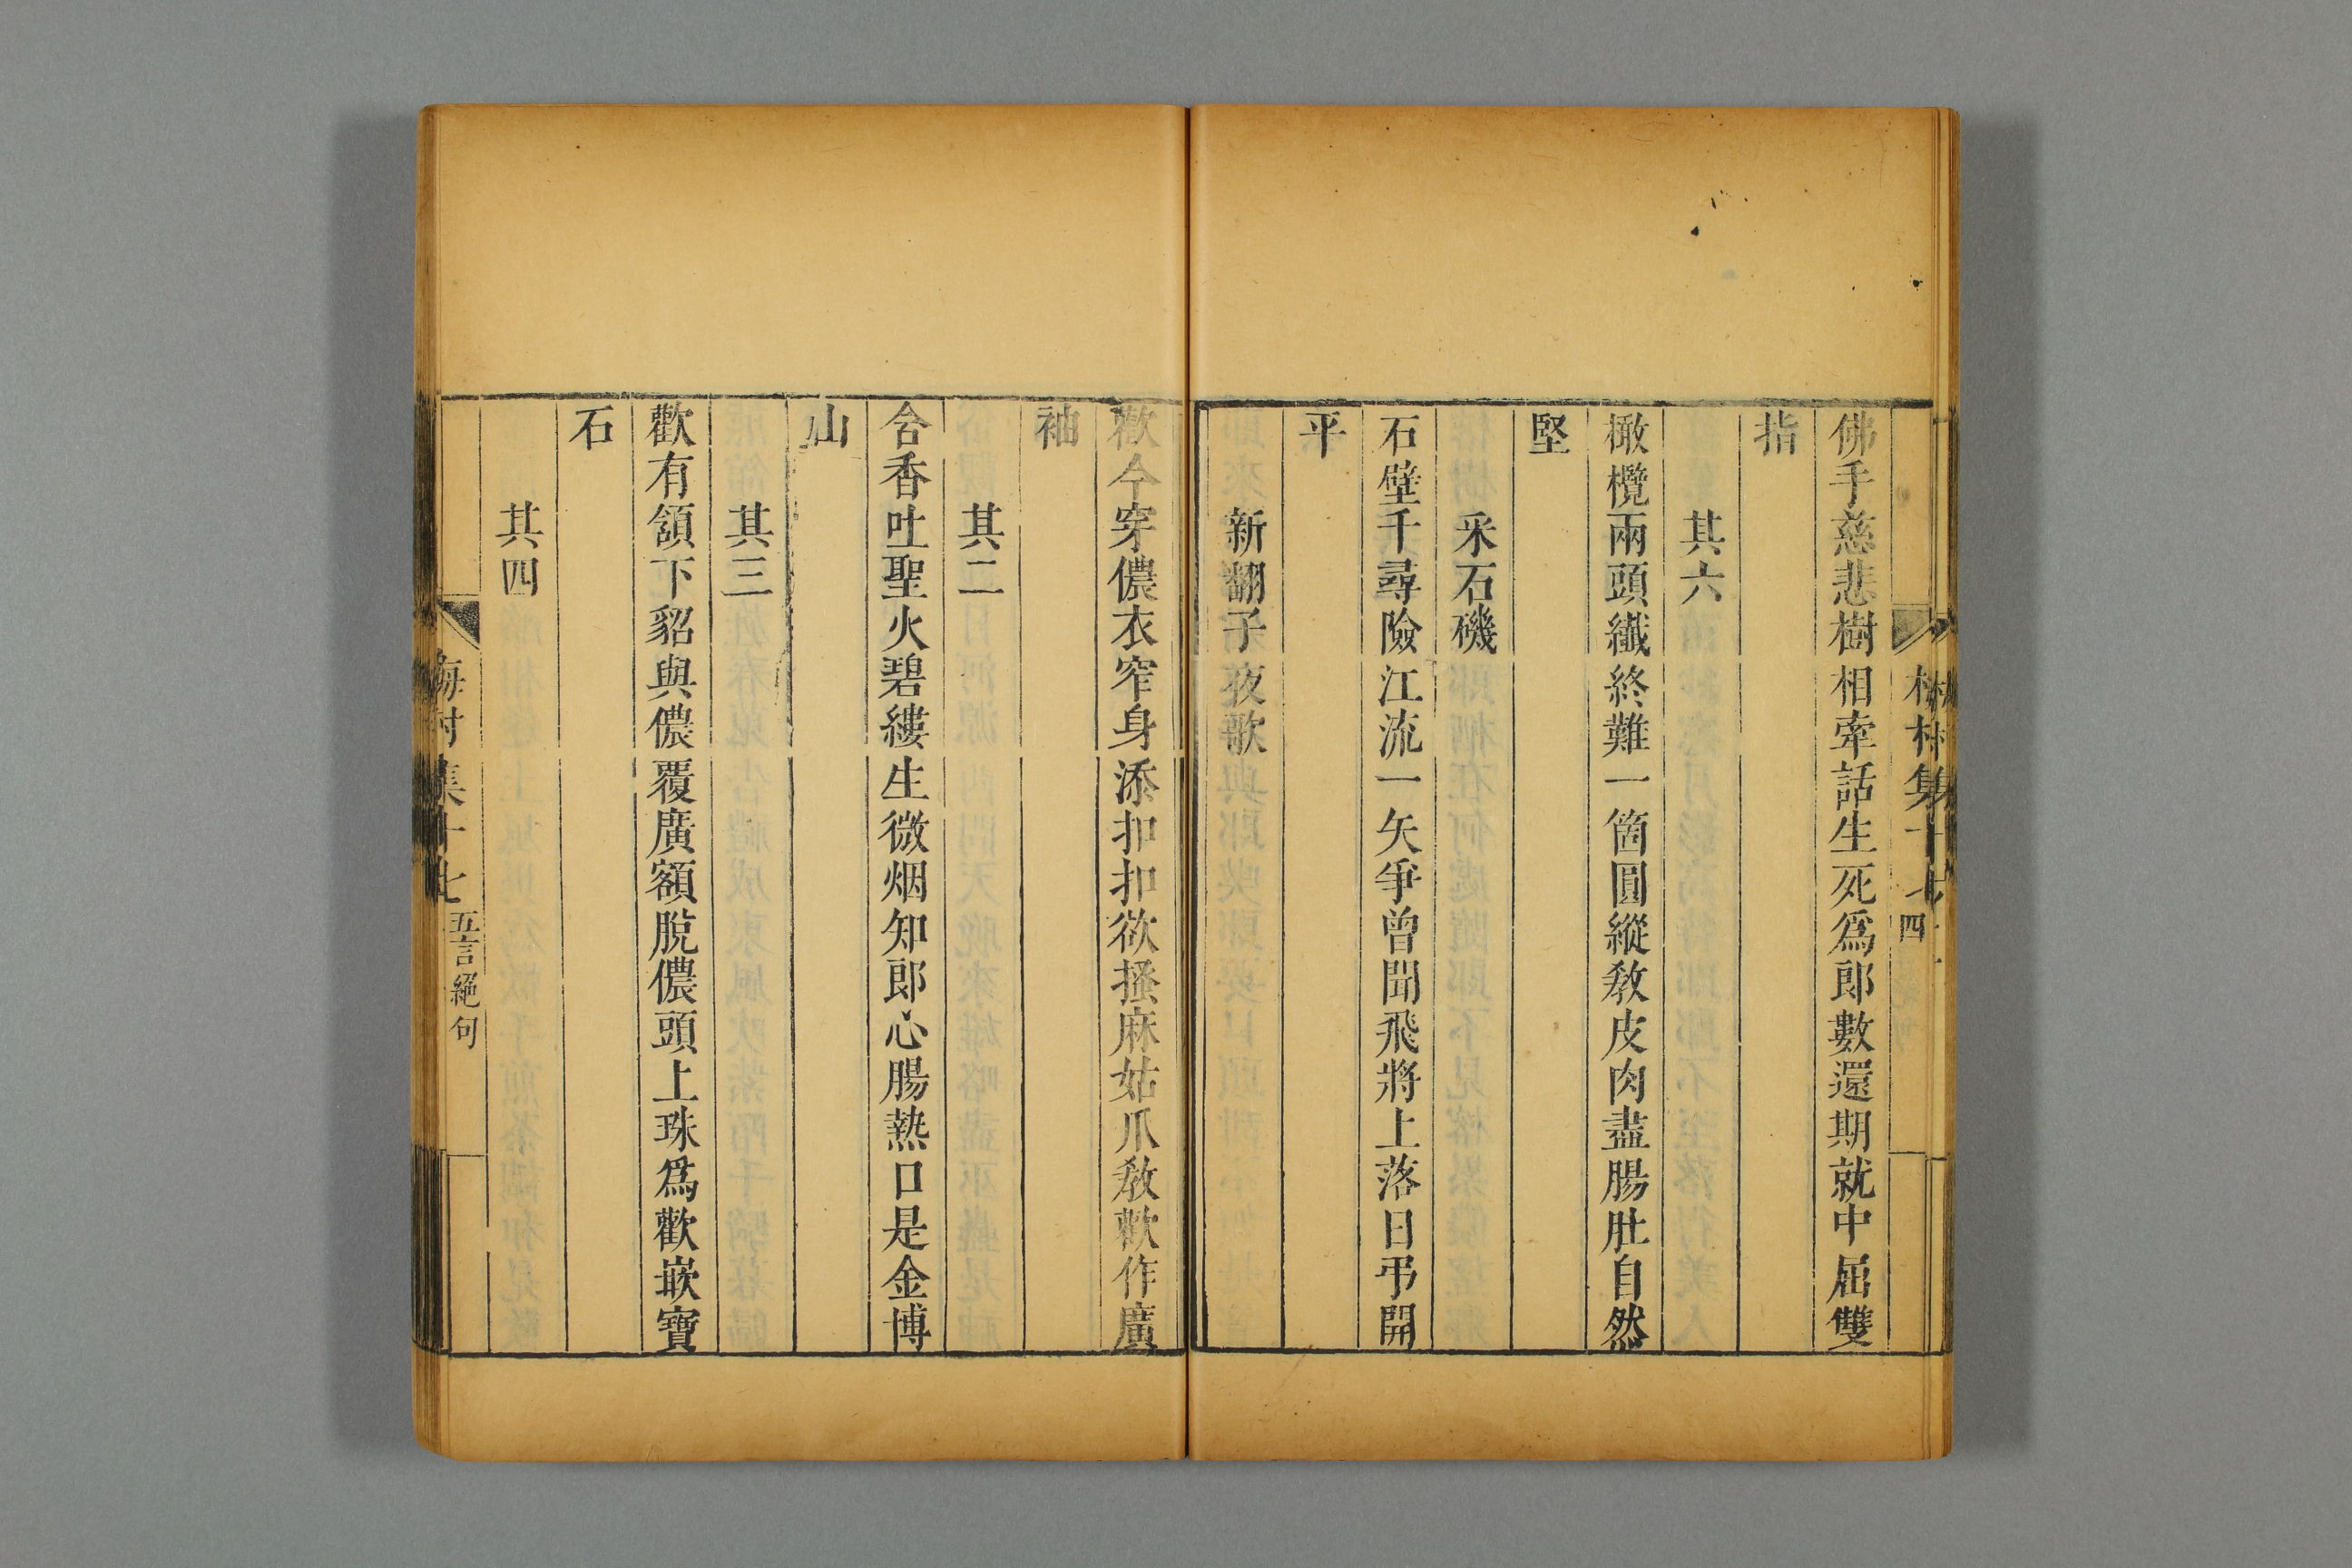 佛手慈悲樹相牽話生死爲郎數還期就中屈雙
指
其六
橄欖兩頭纖終難一箇圓縱教皮肉盡腸肚自然
堅
采石磯
石壁千尋險江流一矢爭曾聞飛將上落日弔開
平
新翻子夜歌
歡今穿儂衣窄身添扣扣欲搔麻姑爪教歡作廣
袖
其二
含香吐聖火碧縷生微烟知郎心腸熱口是金博
山
其三
歡有頷下貂與儂覆廣額脫儂頭上珠爲歡嵌寶
石
其四
梅村集十七
五言絕句
村集十七
四